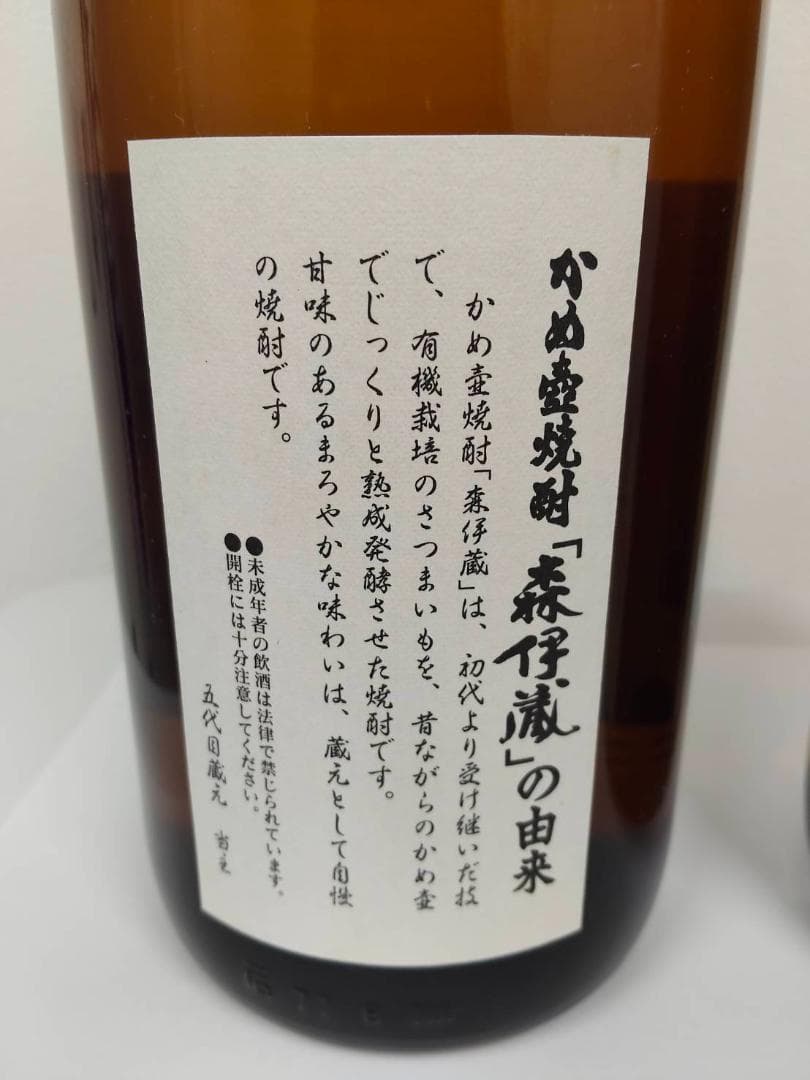 かめ壺焼酎「森伊蔵」の由来
かめ壺焼酎「森伊蔵」は、初代より受け継いだ技
で、有機栽培のさつまいもを、昔ながらのかめ壺
でじっくりと熟成発酵させた焼酎です。
甘味のあるまろやかな味わいは、蔵元として自慢
の焼酎です。
●未成年者の飲酒は法律で禁じられています。
●開栓には十分注意してください。
五代目蔵元 当主